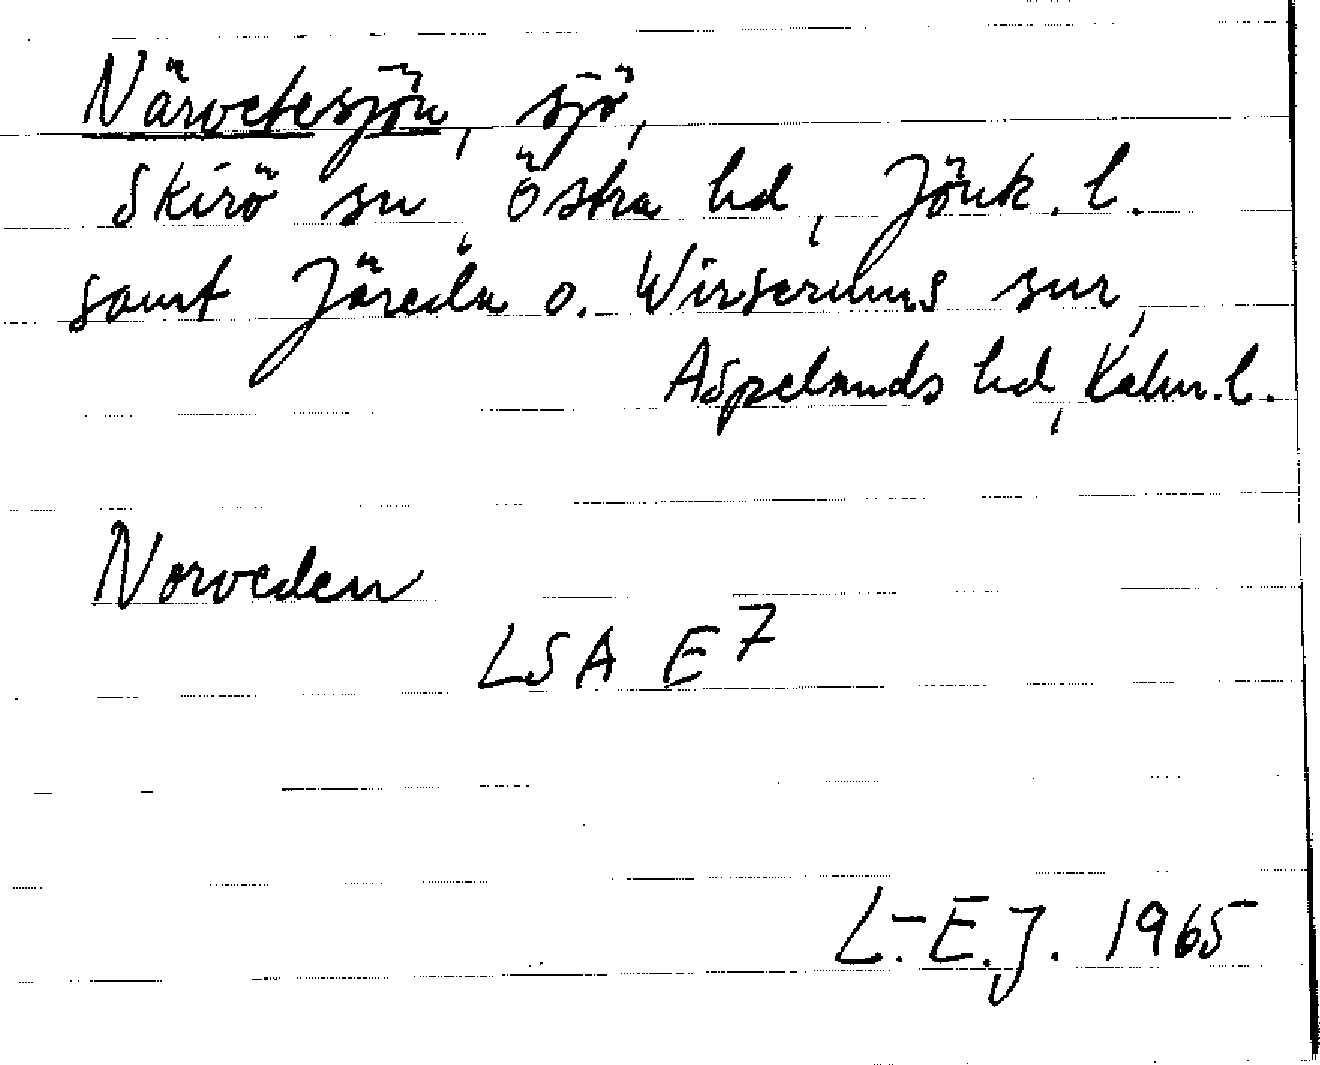 Närvetesjön, sjö,
Skirö sn, Östra hd, Jönk. l.
samt Järeda o. Wirserums snr,
Aspelands hd, Kalm. l.
Norveden
LSA E7
L.-E.J. 1965